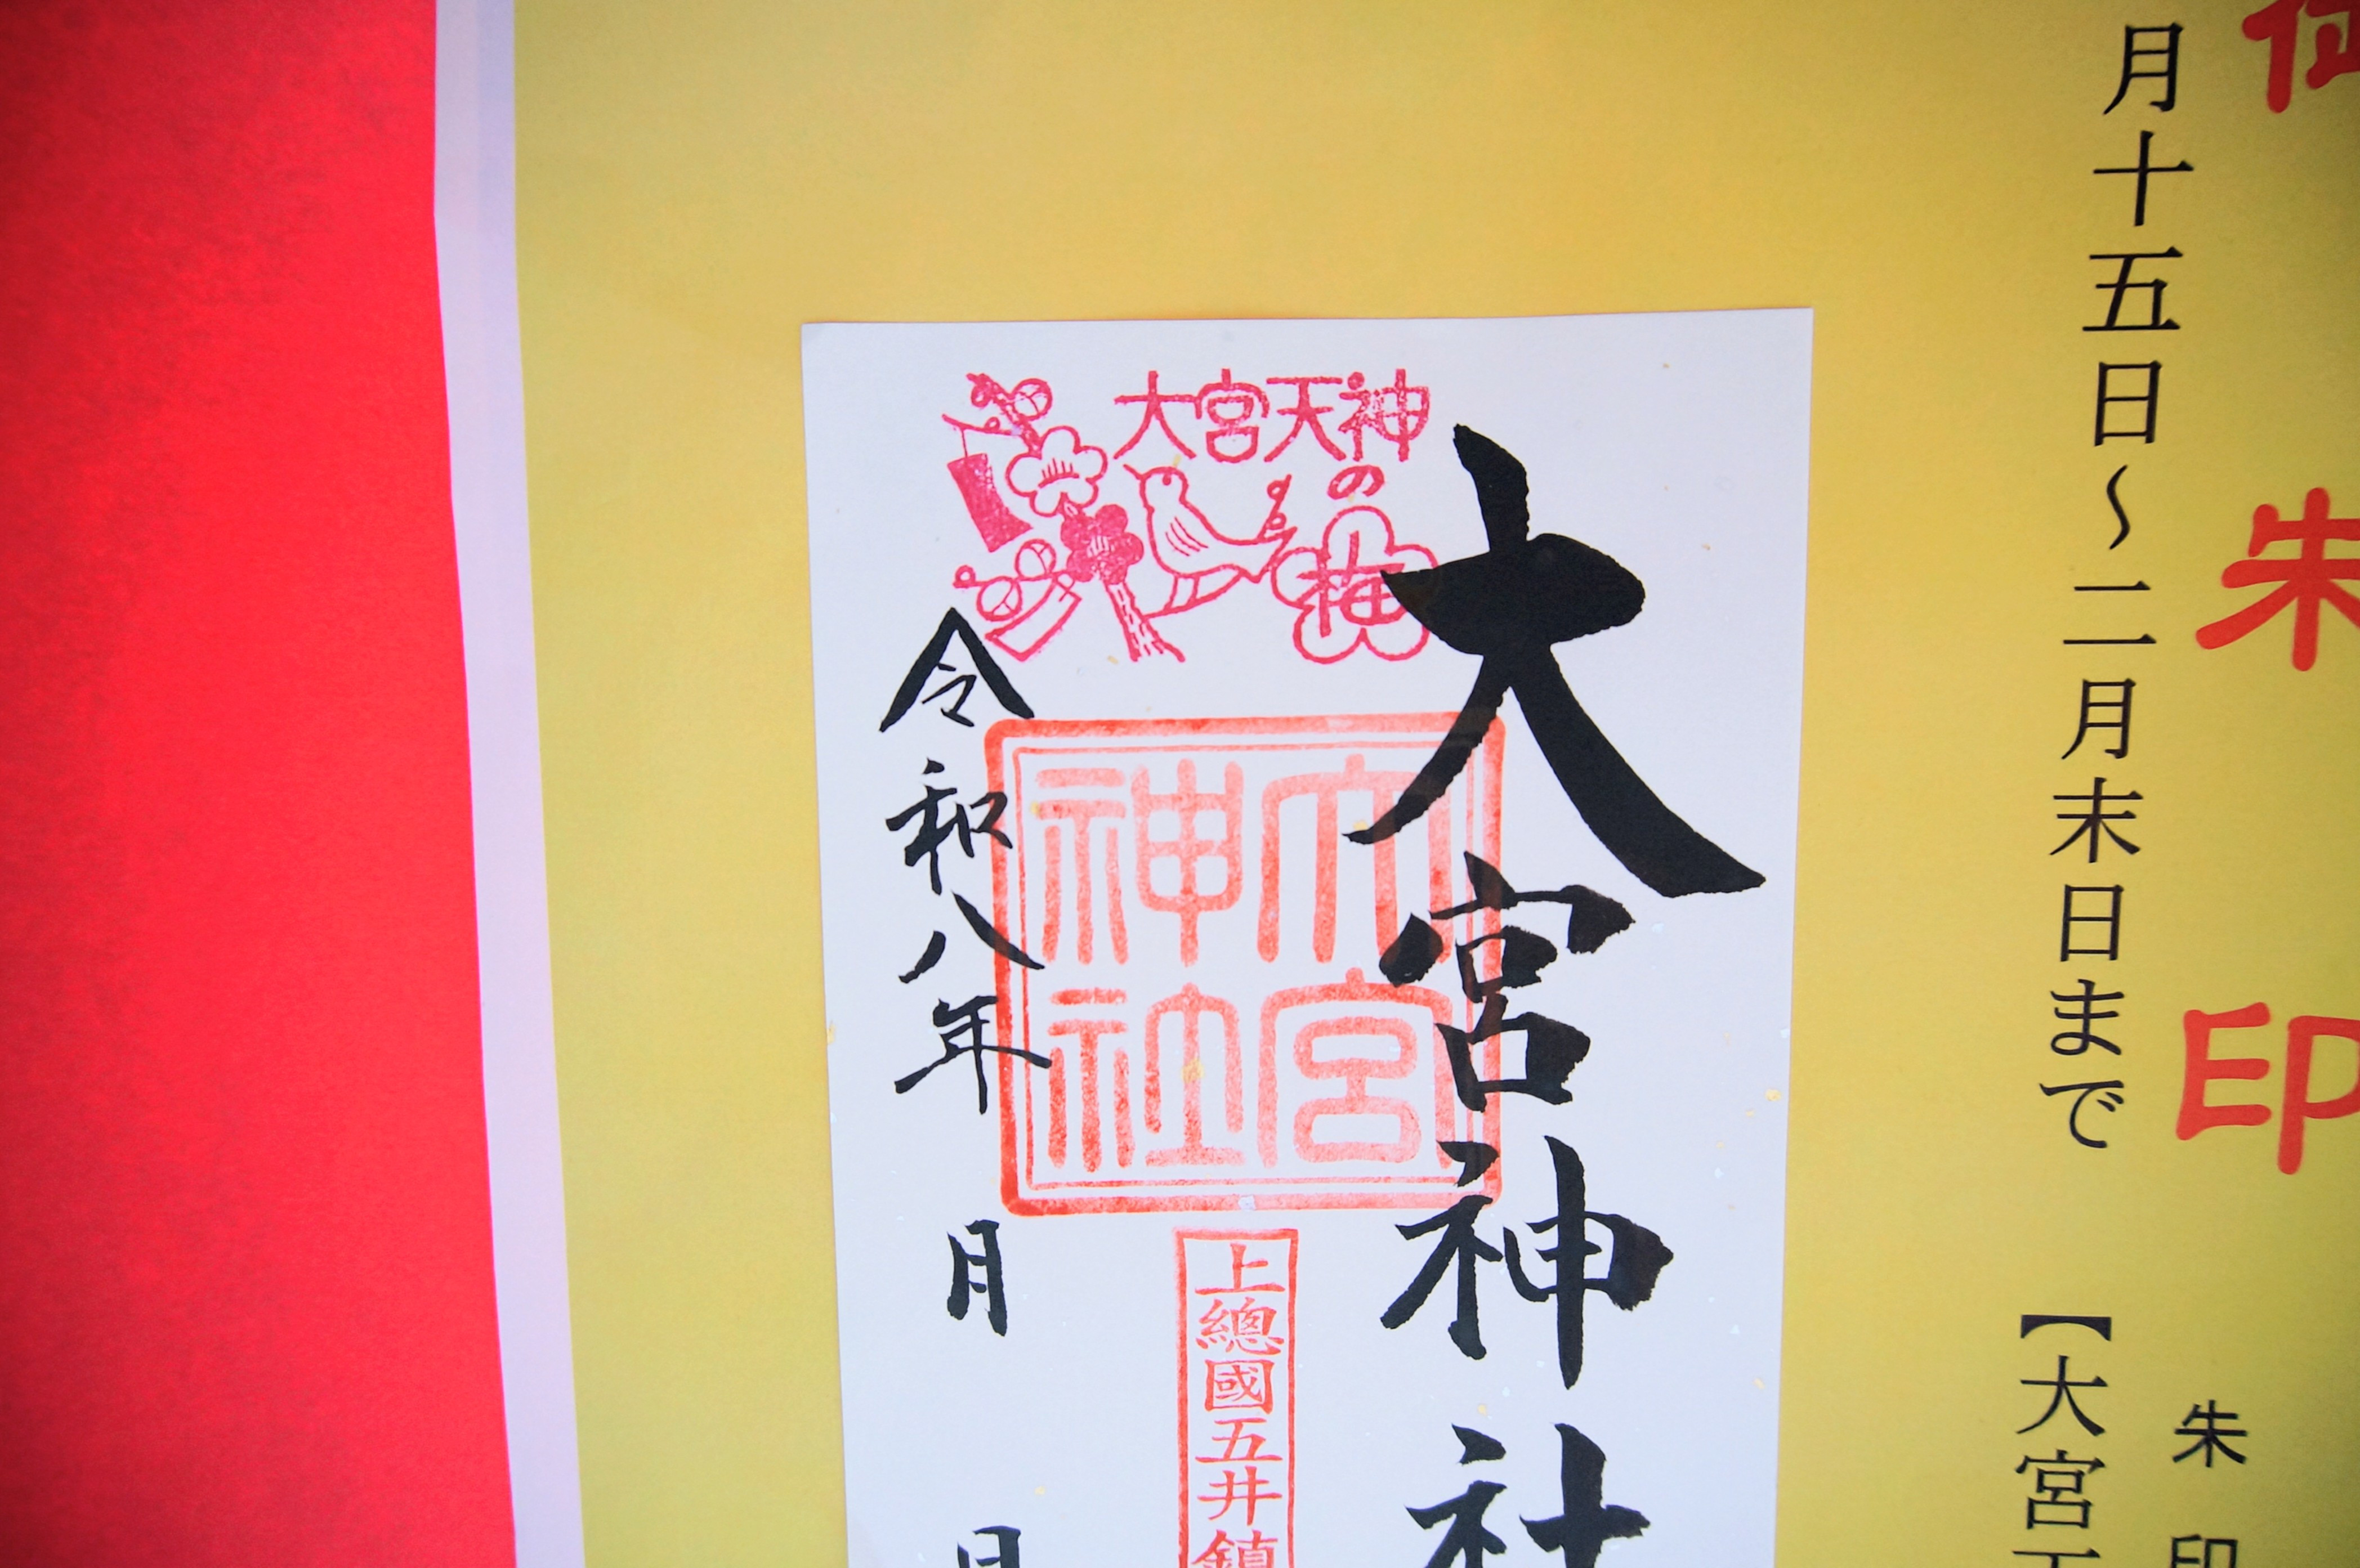 御朱印
朱印
月十五日〜二月末日まで
【大宮天
大宮天神
の
梅
大宮神社
大宮神社
上總國五井鎮
令和八年 月 日